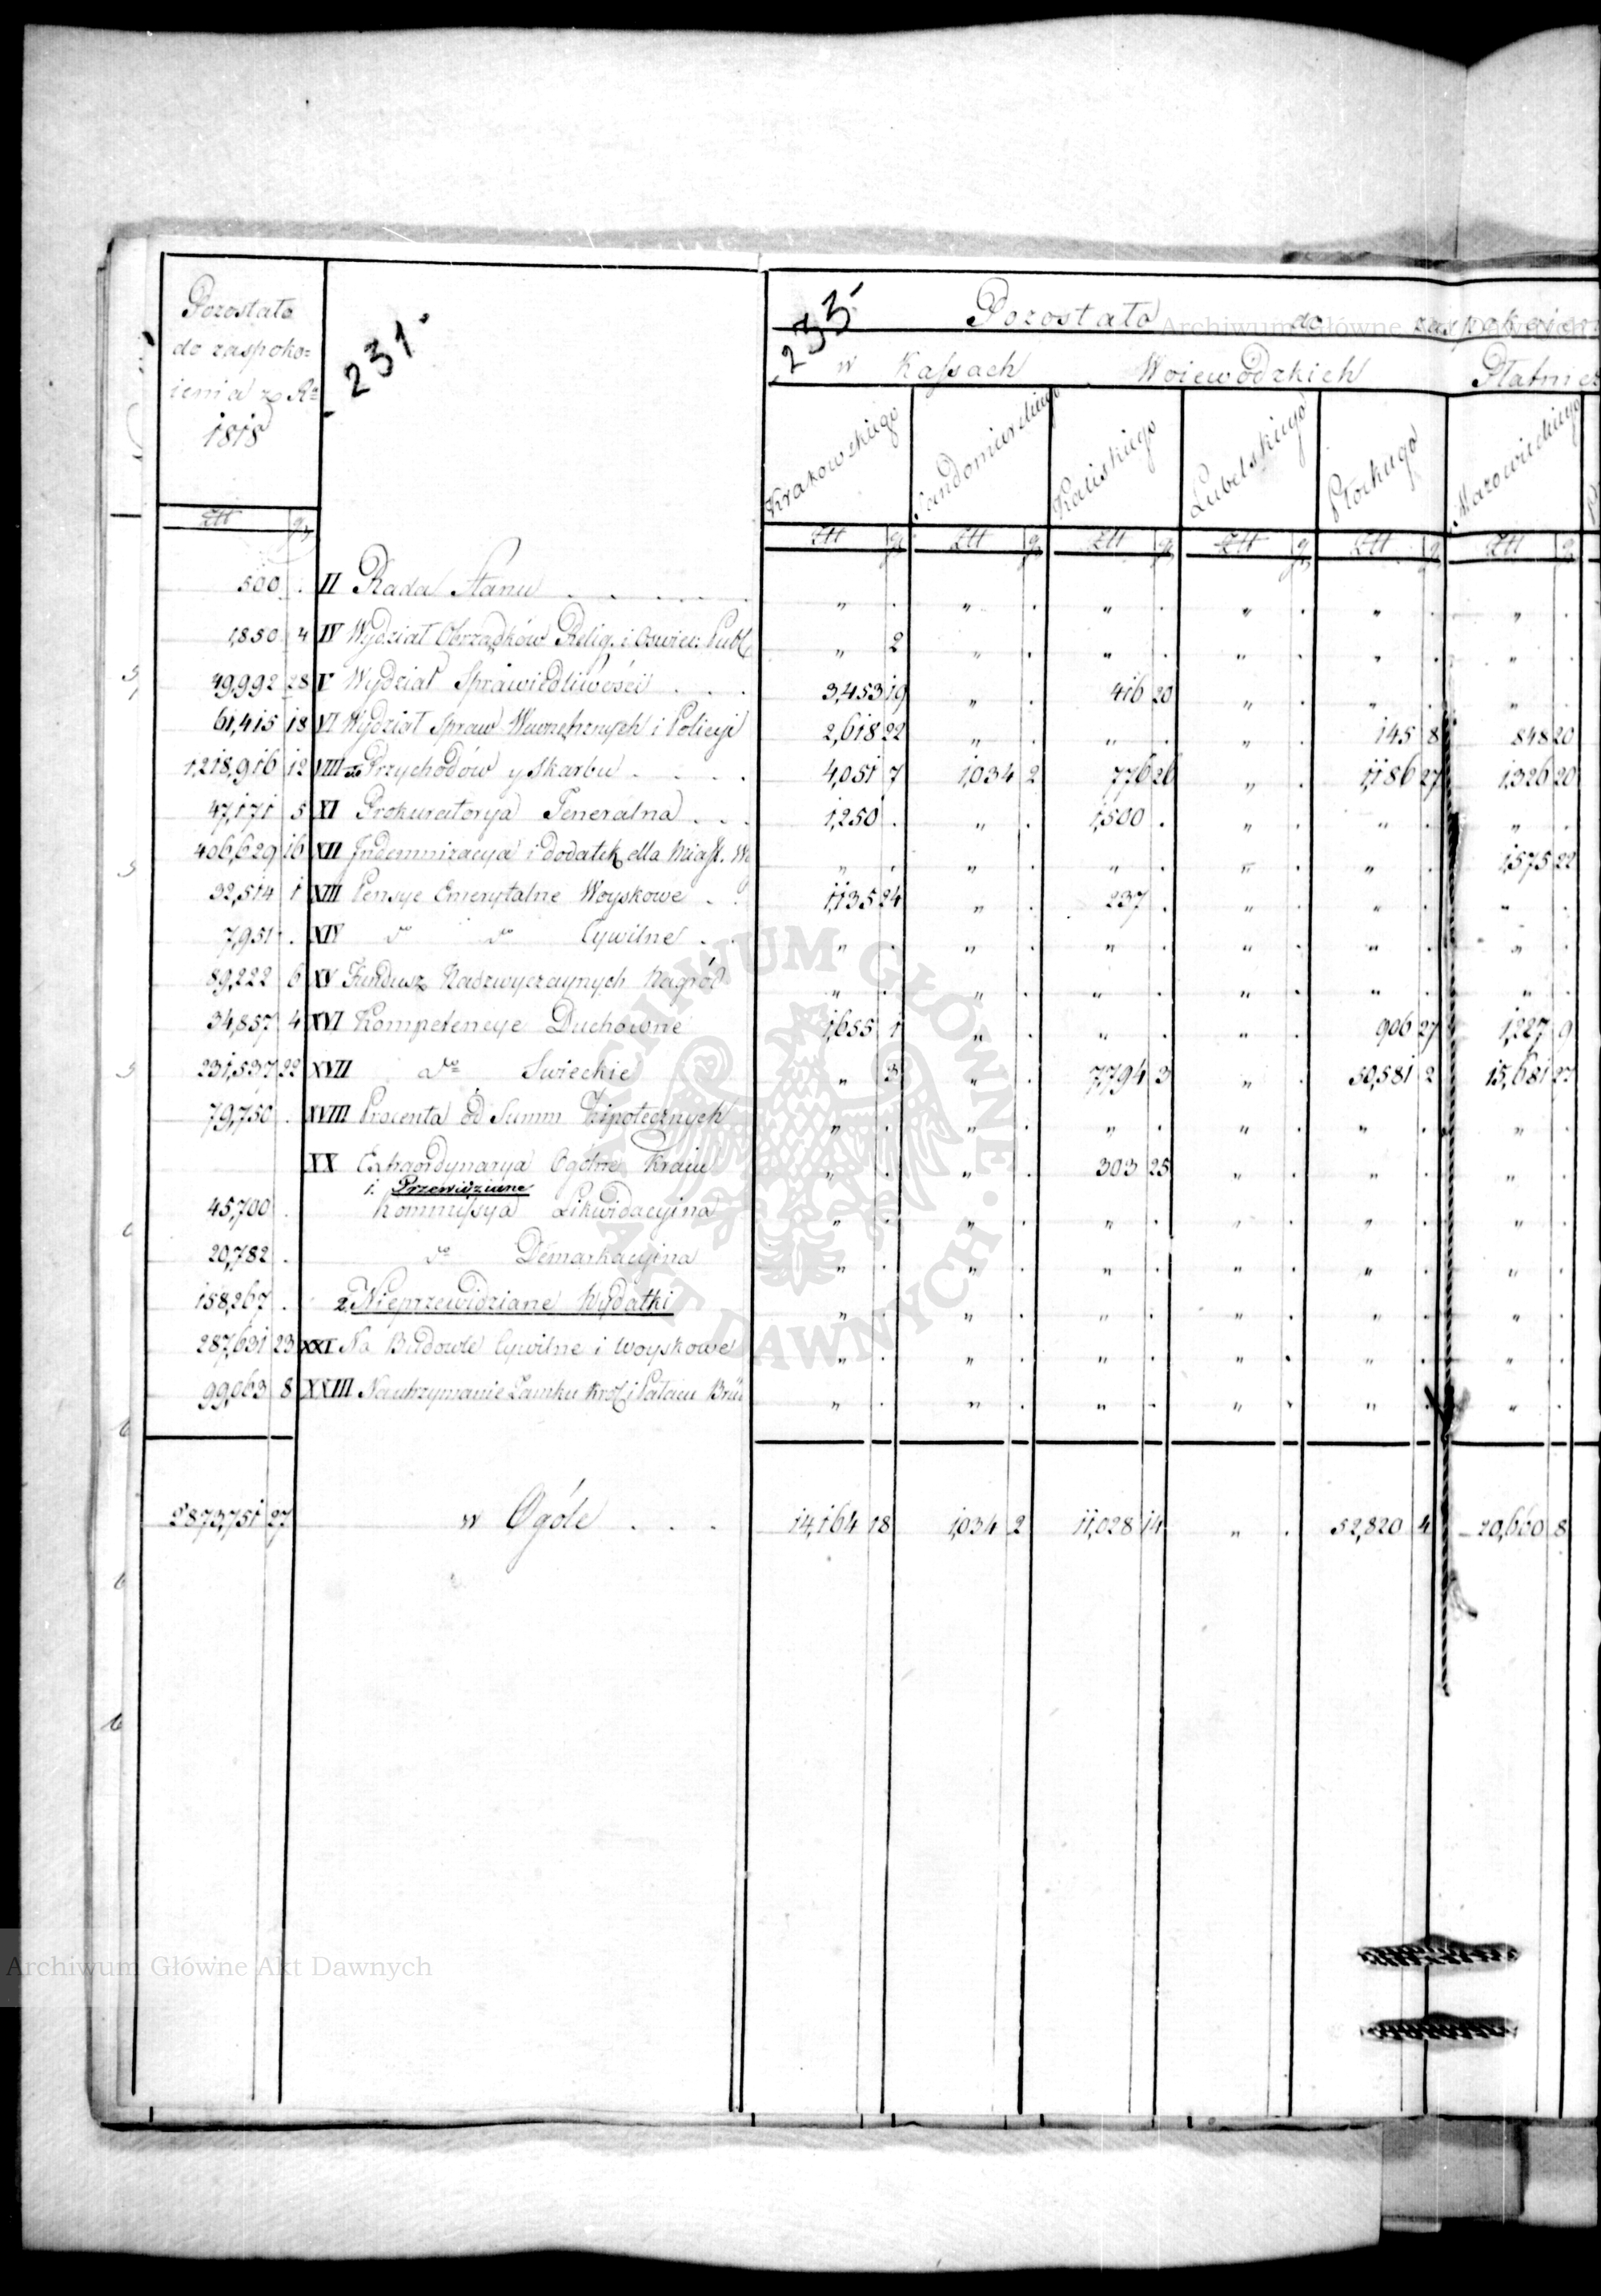 231.
233
Pozostało do zaspokoienia z Rº 1818
Pozostało do zaspokoien
w Kassach Woiewodzkich Płatnicz
Krakowskiego Sandomierskiego Kaliskiego Lubelskiego Płockiego Mazowieckiego
Złt gr Złt gr Złt gr Złt gr Złt gr Złt gr Złt gr
500 . II Rada Stanu . . . . . " . " . " . " . " . " .
1,850 4 IV Wydział Obrządków Relig. i Oswiec. Publ " 2 " . " . " . " . " .
49,992 28 V Wydział Sprawiedliwości . . . 3,453 19 " . 416 20 " . " . " .
61,415 18 VI Wydział Spraw Wewnętrznych i Policyi 2,618 22 " . " . " . 145 8 848 20
1,218,916 12 VIII do Przychodów y Skarbu . . . . 4,051 7 1,034 2 776 26 " . 1,186 27 1,326 20
47,171 5 XI Prokuratorya Jeneralna . . . 1,250 . " . 1,500 . " . " . " .
406,629 16 XII Indemnizacya i dodatek dla Miast. W " . " . " . " . " . 1,575 22
32,514 1 XIII Pensye Emerytalne Woyskowe . . 1,135 24 " . 237 . " . " . " .
7,951 . XIV do do Cywilne . . " . " . " . " . " . " .
89,222 6 XV Fundusz Nadzwyczaynych Nagród " . " . " . " . " . " .
34,857 4 XVI Kompetencye Duchowne 1,655 1 " . " . " . 906 27 1,227 9
231,537 22 XVII do Swieckie " 3 " . 7,794 3 " . 50,581 2 15,681 27
79,750 . XVIII Procenta od Summ Hipotecznych " . " . " . " . " . " .
XX Extraordynarya Ogólne Kraiu " . " . 303 25 " . " . " .
1. Przewidziane
45,700 . Kommissya Likwidacyina " . " . " . " . " . " .
20,782 . do Demarkacyina " . " . " . " . " . " .
158,267 . 2. Nieprzewidziane Wydatki " . " . " . " . " . " .
287,631 23 XXI Na Budowle Cywilne i Woyskowe " . " . " . " . " . " .
99,063 8 XXIII Na utrzymanie Zamku Król. i Pałacu Brül " . " . " . " . " . " .
2873,751 27 w Ogóle . . . 14,164 18 1,034 2 11,028 14 " . 52,820 4 20,660 8
Archiwum Główne Akt Dawnych
ARCHIWUM GŁÓWNE AKT DAWNYCH
Archiwum Główne Akt Dawnych